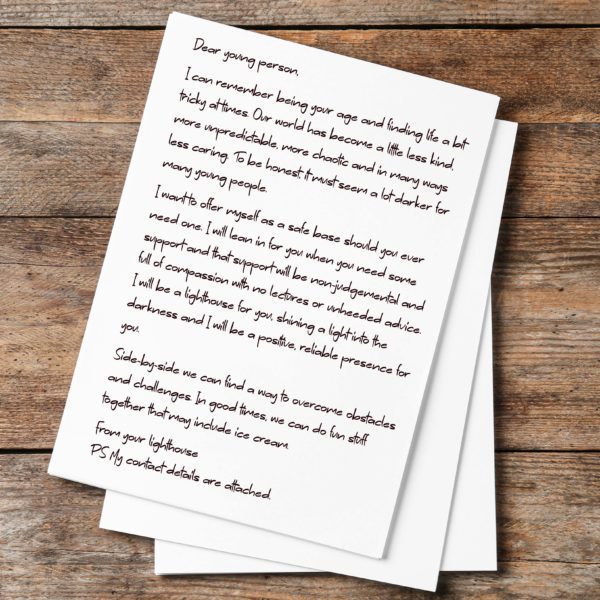 Dear young person,
I can remember being your age and finding life a bit
tricky at times. Our world has become a little less kind,
more unpredictable, more chaotic and in many ways
less caring. To be honest, it must seem a lot darker for
many young people.
I want to offer myself as a safe base should you ever
need one. I will lean in for you when you need some
support and that support will be non-judgemental and
full of compassion with no lectures or unheeded advice.
I will be a lighthouse for you, shining a light into the
darkness and I will be a positive, reliable presence for
you.
Side-by-side we can find a way to overcome obstacles
and challenges. In good times, we can do fun stuff
together that may include ice cream.
From your lighthouse
PS My contact details are attached.